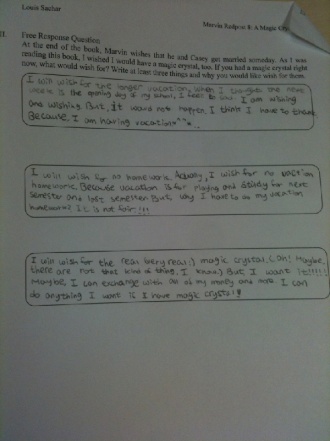 Louis Sachar
Marvin Redpost 8: A Magic
II.
Free Response Question
At the end of the book, Marvin wishes that he and Casey get married someday. As I was
reading this book, I wished I would have a magic crystal, too. If you had a magic crystal right
now, what would wish for? Write at least three things and why you would like wish for them.
I will wish for the longer vacation, when I thought the next
week is the opening day of my school, I feel so sad. I am wishing
and wishing. But, It would not happen. I think I have to thank
Because, I am having vacation^^*..
I will wish for no homework. Actually, I wish for no vacation
homework. Because vacation is for playing and study for next
semester and last semester. But, why I have to do my vacation
homework? It is not fair!!!
I will wish for the real (very real:) magic crystal. (oh! Maybe,
there are not that kind of thing. I know:) But I want it!!!!!
Maybe, I can exchange with all of my money and more. I can
do anything I want is I have magic crystal!